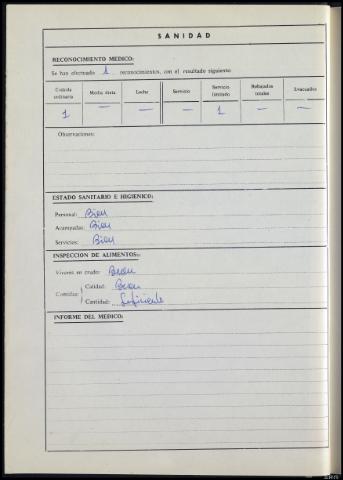 SANIDAD
RECONOCIMIENTO MEDICO:
Se han efectuado 1 reconocimientos, con el resultado siguiente
Comida ordinaria Media dieta Leche Servicio Servicio limitado Rebajados totales Evacuados
1 — — — 1 — —
Observaciones:
ESTADO SANITARIO E HIGIENICO:
Personal: Bien
Acampada: Bien
Servicios: Bien
INSPECCION DE ALIMENTOS:
Víveres en crudo: Bien
Comidas: Calidad: Bien
Cantidad: Suficiente
INFORME DEL MEDICO: